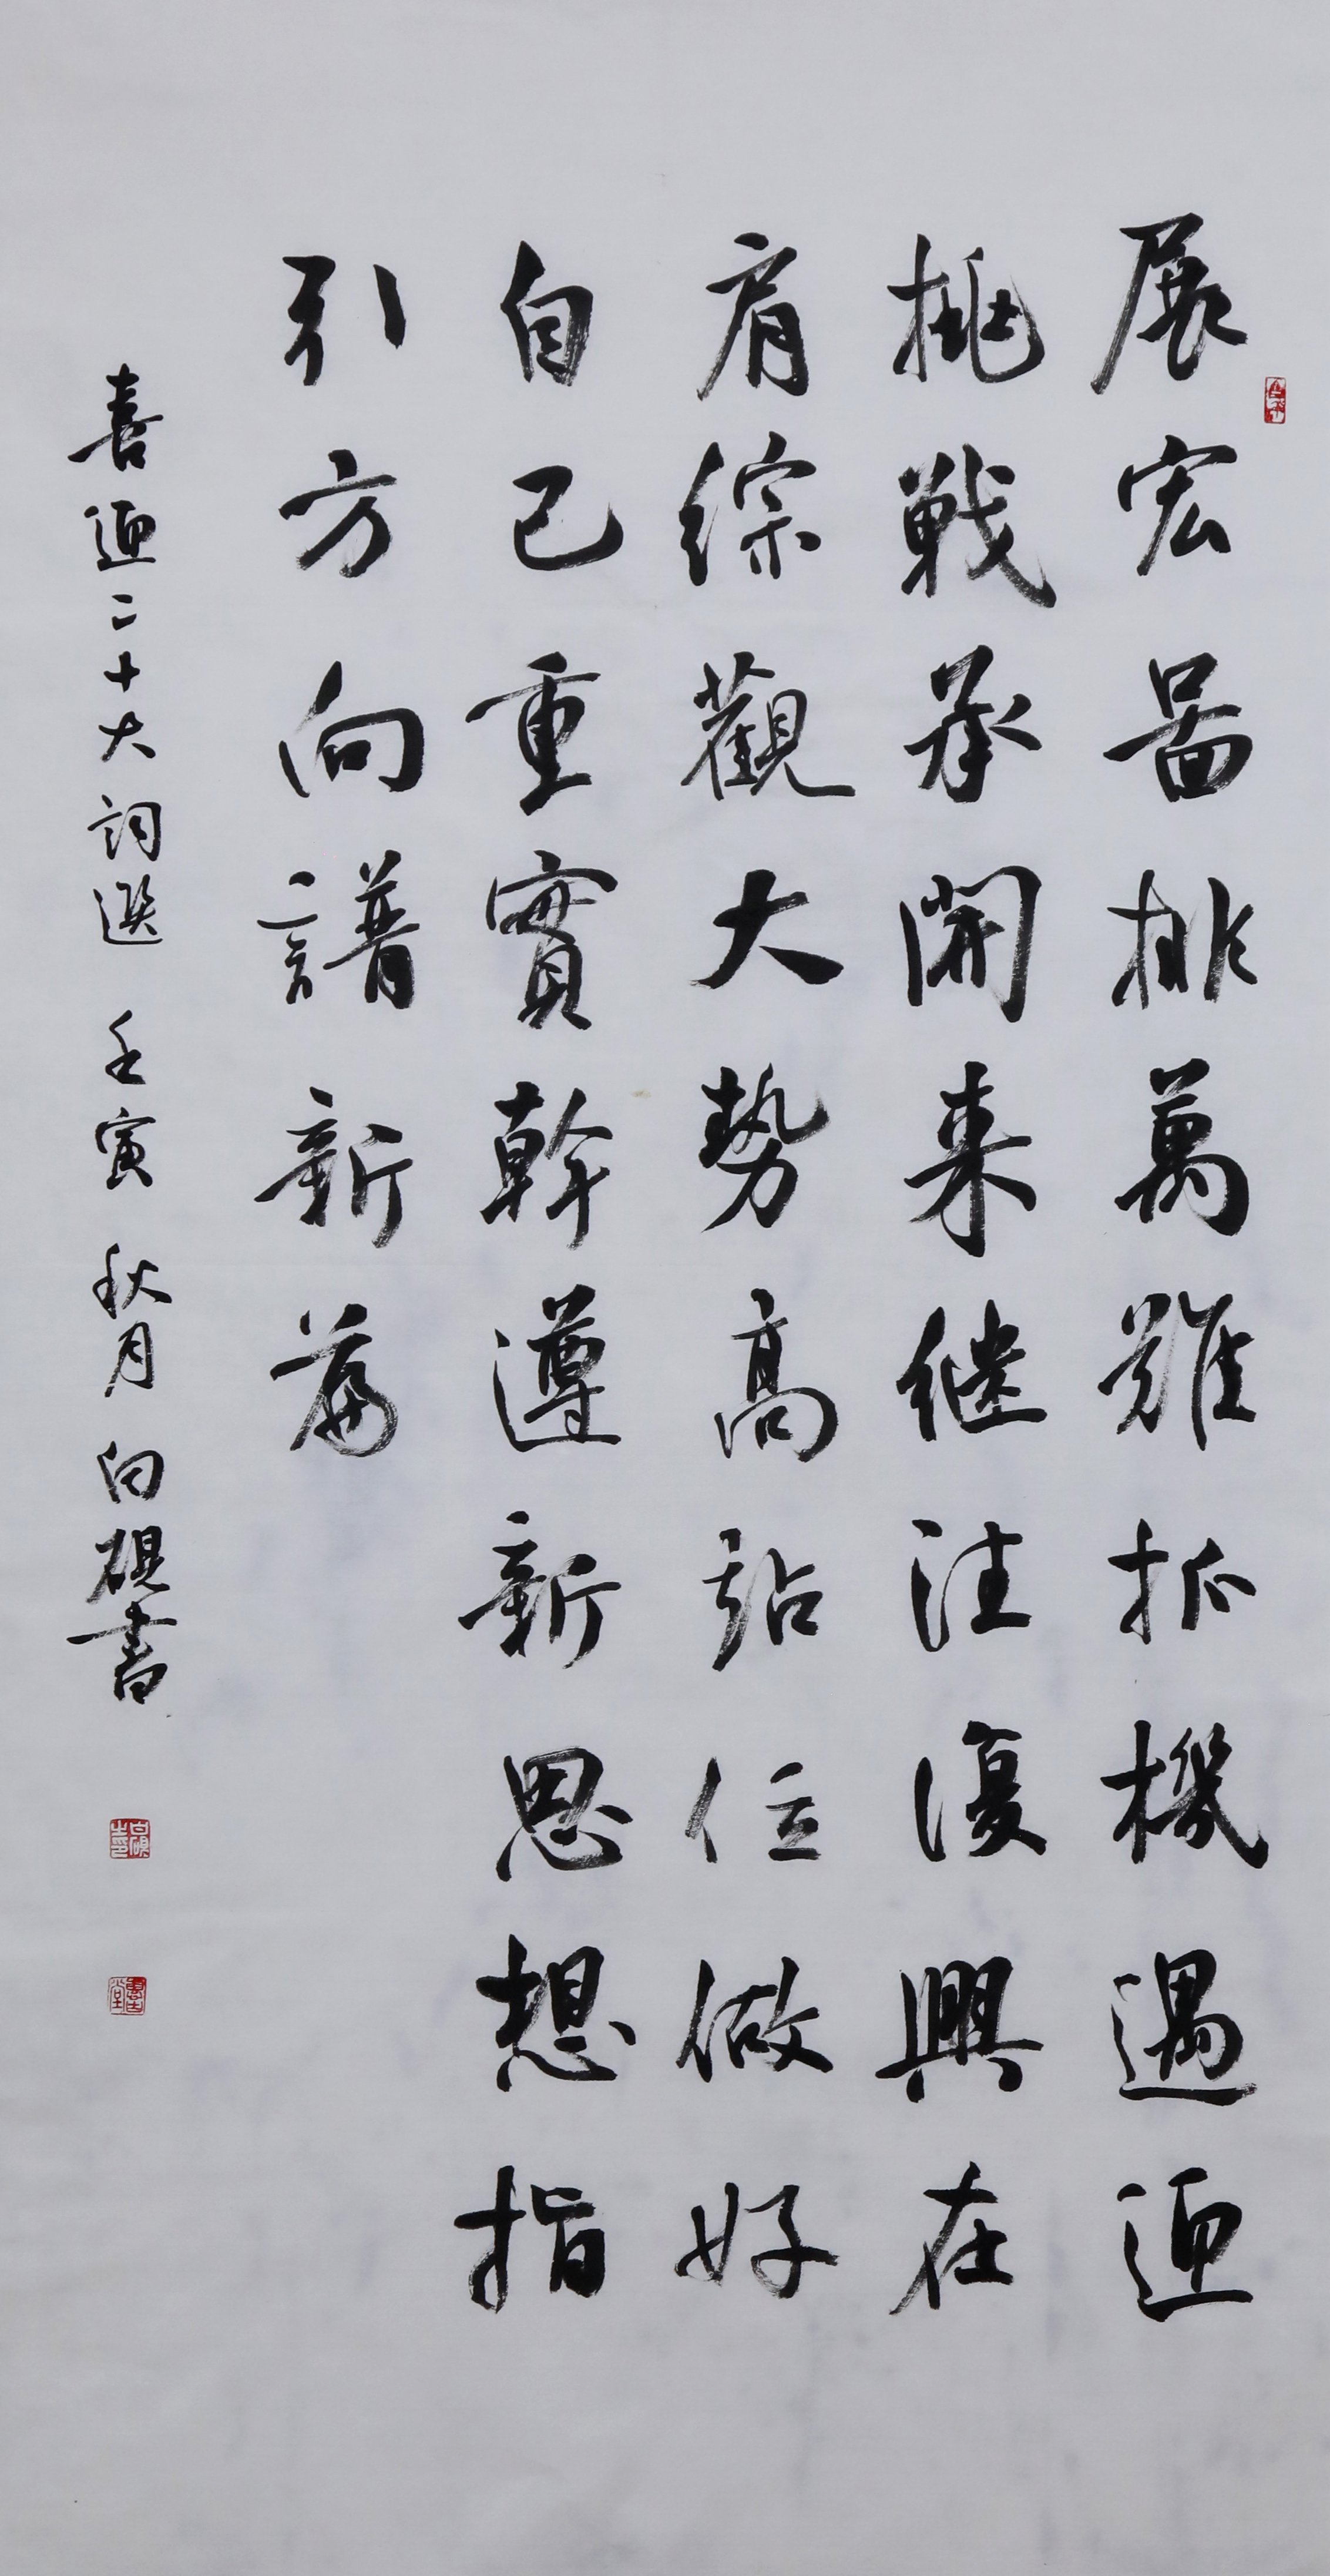 展宏啚排萬難抓機遇迎
挑戰承開来继注復興在
肩綜觀大勢高站位做好
自己重實幹遵新思想指
引方向譜新篇
喜迎二十大詞選 壬寅秋月白硯書